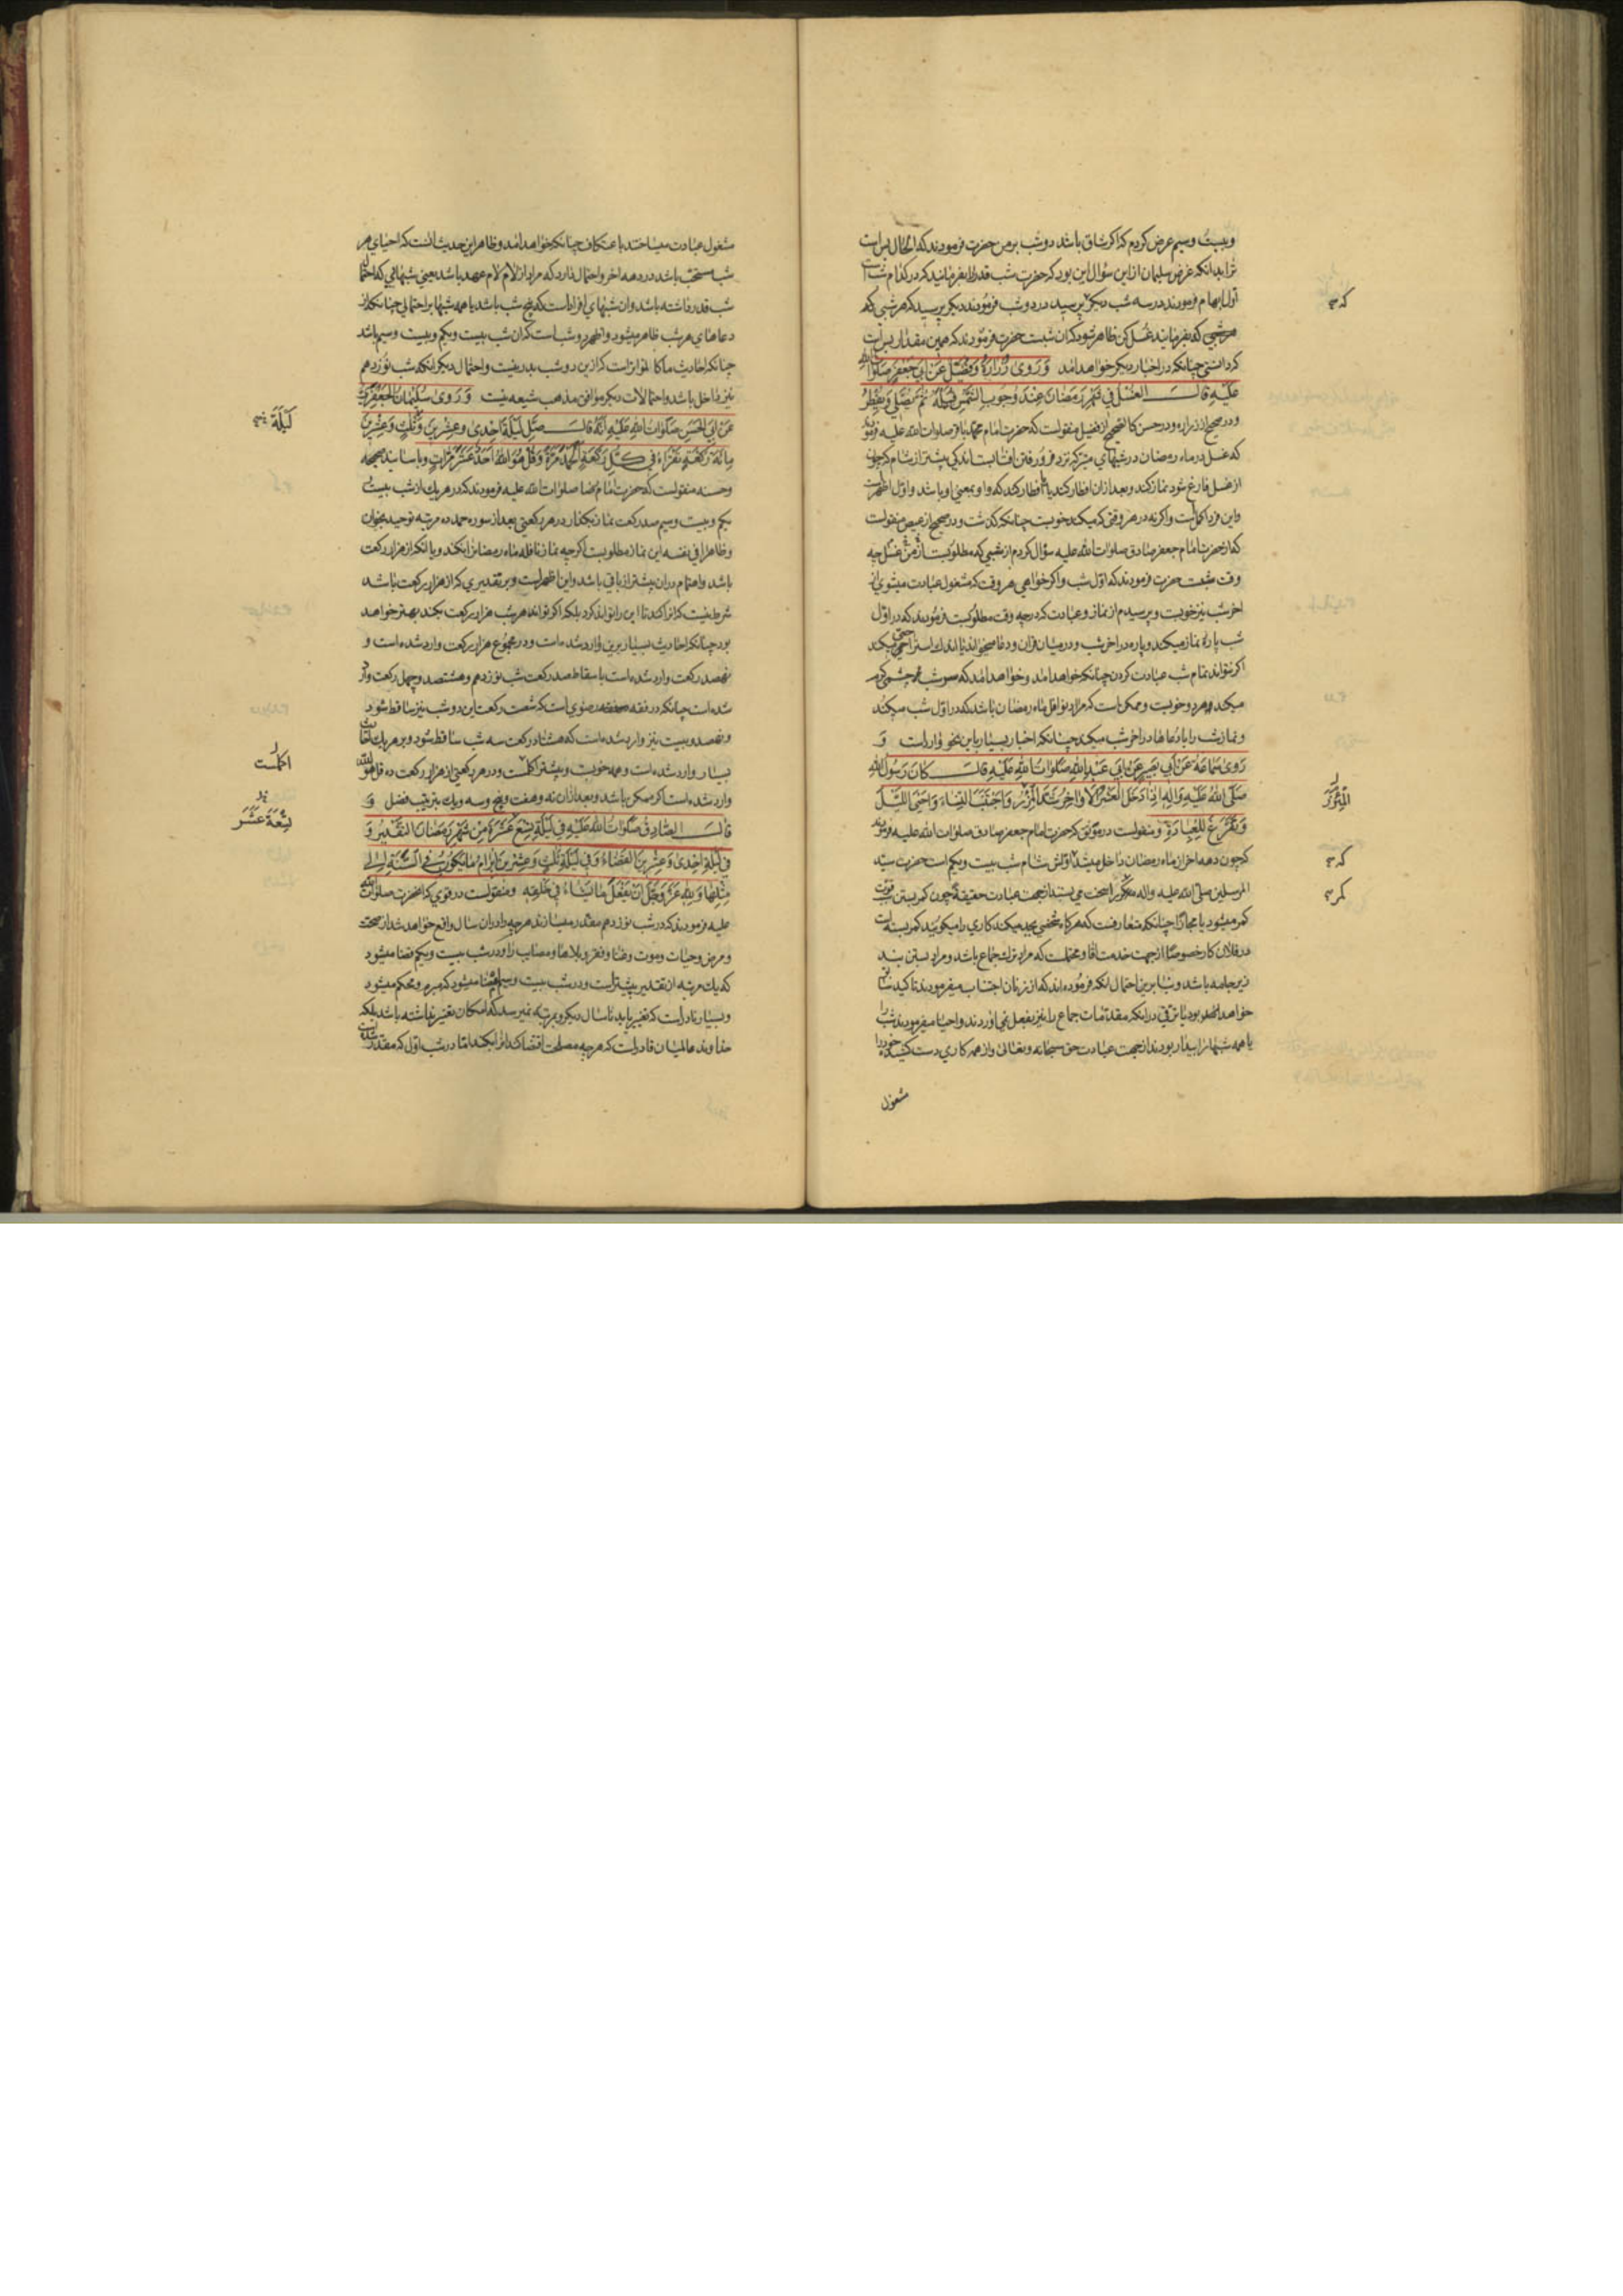 وبیست و سیم عرض کردم که اگر شاق باشد دو شب بر من حضرت فرمودند که الحال بس است
ترا بدانکه غرض سلیمان از این سؤال این بود که حضرت شب قدر را بفرمایند که در کدام شب است
اول ابهام فرمودند در سه شب دیگر پرسید در دو شب فرمودند دیگر پرسید که هر شبی که
که بفرمایند غسل کن ظاهر شود که آن شبست حضرت فرمودند که همین مقدار بس است
که دانستی چنانکه در اخبار دیگر خواهد آمد وَ رَوی زُرارَةُ وَ فُضَیْلٌ عَنْ اَبی جَعْفَرٍ صَلَواتُ الله
عَلَیْهِ قالَ الغُسْلُ فی شَهْرِ رَمَضانَ عِنْدَ وُجُوبِ الشَّمْسِ قُبَیْلَهُ ثُمَّ یُصَلّی وَ یُفْطِرُ
و در صحیح از زراره و در حسن کالصحیح از فضیل منقولست که حضرت امام محمد باقر صلوات الله علیه فرمودند
که غسل در ماه رمضان در شبهای متبرکه نزد فرو رفتن آفتابست اندکی پیشتر از شام که چون
از غسل فارغ شود نماز کند و بعد از آن افطار کند یا افطار کند که واو بمعنی او باشد و اول اظهر است
و این فرد اکمل است و اگر نه در هر وقتی که میکند خوبست چنانکه گذشت و در صحیح از عیص منقولست
که از حضرت امام جعفر صادق صلوات الله علیه سؤال کردم از شبی که مطلوبست از من غسل چه
وقت شبست حضرت فرمودند که اول شب و اگر خواهی هر وقت که مشغول عبادت میشوی از
آخر شب نیز خوبست و پرسیدم از نماز و عبادت که در چه وقت مطلوبست فرمودند که در اول
شب پاره نماز میکند و پاره در آخر شب و در میان قرآن و دعا میخواند یا اندک استراحتی میکند
اگر نتواند تمام شب عبادت کردن چنانکه خواهد آمد و خواهد آمد که
میکند و هر دو خوبست و ممکن است که مراد نوافل ماه رمضان باشد که در اول شب میکند
و نماز شب را با دعاها در آخر شب میکند چنانکه اخبار بسیار باین نحو وارد است وَ
رَوی سَماعَةُ عَنْ اَبی بَصیرٍ عَنْ اَبی عَبْدِ اللهِ صَلَواتُ اللهِ عَلَیْهِ قالَ کانَ رَسُولُ اللهِ
صَلَّی اللهُ عَلَیْهِ وَ الِهِ اِذا دَخَلَ العَشْرُ الاَواخِرُ شَدَّ المِئْزَرَ وَ اجْتَنَبَ النِّساءَ وَ اَحْیَی اللَّیْلَ
وَ تَفَرَّغَ لِلْعِبادَةِ و منقولست در موثق که حضرت امام جعفر صادق صلوات الله علیه فرمودند
که چون دهه آخر از ماه رمضان داخل میشد و اولش شام شب بیست و یکم است حضرت سید
المرسلین صلی الله علیه و آله کمر را سخت می بستند از جهت عبادت حقیقة چون کمر بستن قوت
کمر میشود یا مجازا چنانکه متعارفست که هرگاه شخصی بجد میکند کاری را میگویند کمر بسته است
در فلان کار خصوصا از جهت خدمت آقا و محتملست که مراد ترک جماع باشد و مراد بستن بند
زیر جامه باشد و بنا برین احتمال آنکه فرموده اند که از زنان اجتناب میفرمودند تاکید سابق
خواهد بود یا ترقی در آنکه مقدمات جماع را نیز بفعل نمی آوردند و احیا میفرمودند شب را
یا همه شبها را بیدار بودند از جهت عبادت حق سبحانه و تعالی و از همه کاری دست کشیده خود را
مشغول
که
المِئْزَرَ
که
کمر
مشغول عبادت میساختند با عتکاف چنانکه خواهد آمد و ظاهر این حدیث آنست که احیای هر
شب مستحب باشد در دهه آخر و احتمال دارد که مراد از لام لام عهد باشد یعنی شبهائی که احتمال
شب قدر داشته باشد و آن شبهای افراد است که پنج شب باشد یا همه شبها بر احتمالی چنانکه از
دعاهای هر شب ظاهر میشود و اظهر دو شب است که آن شب بیست و یکم و بیست و سیم باشد
چنانکه احادیث ما کالمتواتر است که ازین دو شب بدر نیست و احتمال دیگر آنکه شب نوزدهم
نیز داخل باشد و احتمالات دیگر موافق مذهب شیعه نیست وَ رَوی سُلَیْمانُ الجَعْفَرِیُّ
عَنْ اَبی الحَسَنِ صَلَواتُ اللهِ عَلَیْهِ اَنَّهُ قالَ صَلِّ لَیْلَةَ اِحْدی وَ عِشْرینَ وَ ثَلثٍ وَ عِشْرینَ
مِائَةَ رَکْعَةٍ تَقْرَاءُ فی کُلِّ رَکْعَةٍ الحَمْدَ مَرَّةً وَ قُلْ هُوَ اللهُ اَحَدٌ عَشْرَ مَرّاتٍ و باسانید صحیحه
و حسنه منقولست که حضرت امام رضا صلوات الله علیه فرمودند که در هر یک از شب بیست و
یکم و بیست و سیم صد رکعت نماز بگذار در هر رکعتی بعد از سوره حمد ده مرتبه توحید بخوان
و ظاهرا فی نفسه این نماز مطلوبست اگر چه نماز نافله ماه رمضان را نکند و یا آنکه از هزار رکعت
باشد و اهتمام در آن بیشتر از باقی باشد و این اظهر است و بر تقدیری که از هزار رکعت باشد
شرط نیست که آنرا کند تا این را تواند کرد بلکه اگر تواند هر شب هزار رکعت بکند بهتر خواهد
بود چنانکه احادیث بسیار برین وارد شده است و در مجموع هزار رکعت وارد شده است و
نهصد رکعت وارد شده است با سقاط صد رکعت شب نوزدهم و هشتصد و چهل رکعت وارد
شده است چنانکه در فقه رضوی است که شصت رکعت این دو شب نیز ساقط شود
و نهصد و بیست نیز وارد شده است که هشتاد رکعت سه شب ساقط شود و بر هر یک احادیث
بسیار وارد شده است و همه خوبست و بیشتر اکملست و در هر رکعتی از هزار رکعت ده قل هو الله
وارد شده است اگر ممکن باشد و بعد از آن نه و هفت و پنج و سه و یک بترتیب فضل وَ
قالَ الصّادِقُ صَلَواتُ اللهِ عَلَیْهِ فی لَیْلَةِ تِسْعَ عَشَرَةَ مِنْ شَهْرِ رَمَضانَ التَّقْدیرُ وَ
فی لَیْلَةِ اِحْدی وَ عِشْرینَ القَضاءُ وَ فی لَیْلَةِ ثَلثٍ وَ عِشْرینَ اِبْرامُ ما یَکُونُ فی السَّنَةِ اِلی
مِثْلِها وَ لِلّهِ عَزَّ وَ جَلَّ اَنْ یَفْعَلَ ما یَشاءُ فی خَلْقِهِ و منقولست در قوی که آنحضرت صلوات الله
علیه فرمودند که در شب نوزدهم مقدر میسازند هر چه را در آن سال واقع خواهد شد از صحت
و مرض و حیات و موت و غنا و فقر و بلاها و مصایب را و در شب بیست و یکم قضا میشود
که یک مرتبه از تقدیر بیشتر است و در شب بیست و سیم امضا میشود که مبرم و محکم میشود
و بسیار نادر است که تغییر یابد تا سال دیگر و بمرتبه نمیرسد که امکان تغییر نداشته باشد بلکه
خداوند عالمیان قادر است که هر چه مصلحت اقتضا کند آنرا بکند اما در شب اول که مقدر شده است
لَیْلَةَ
اکملست
تِسْعَةَ عَشَرَ